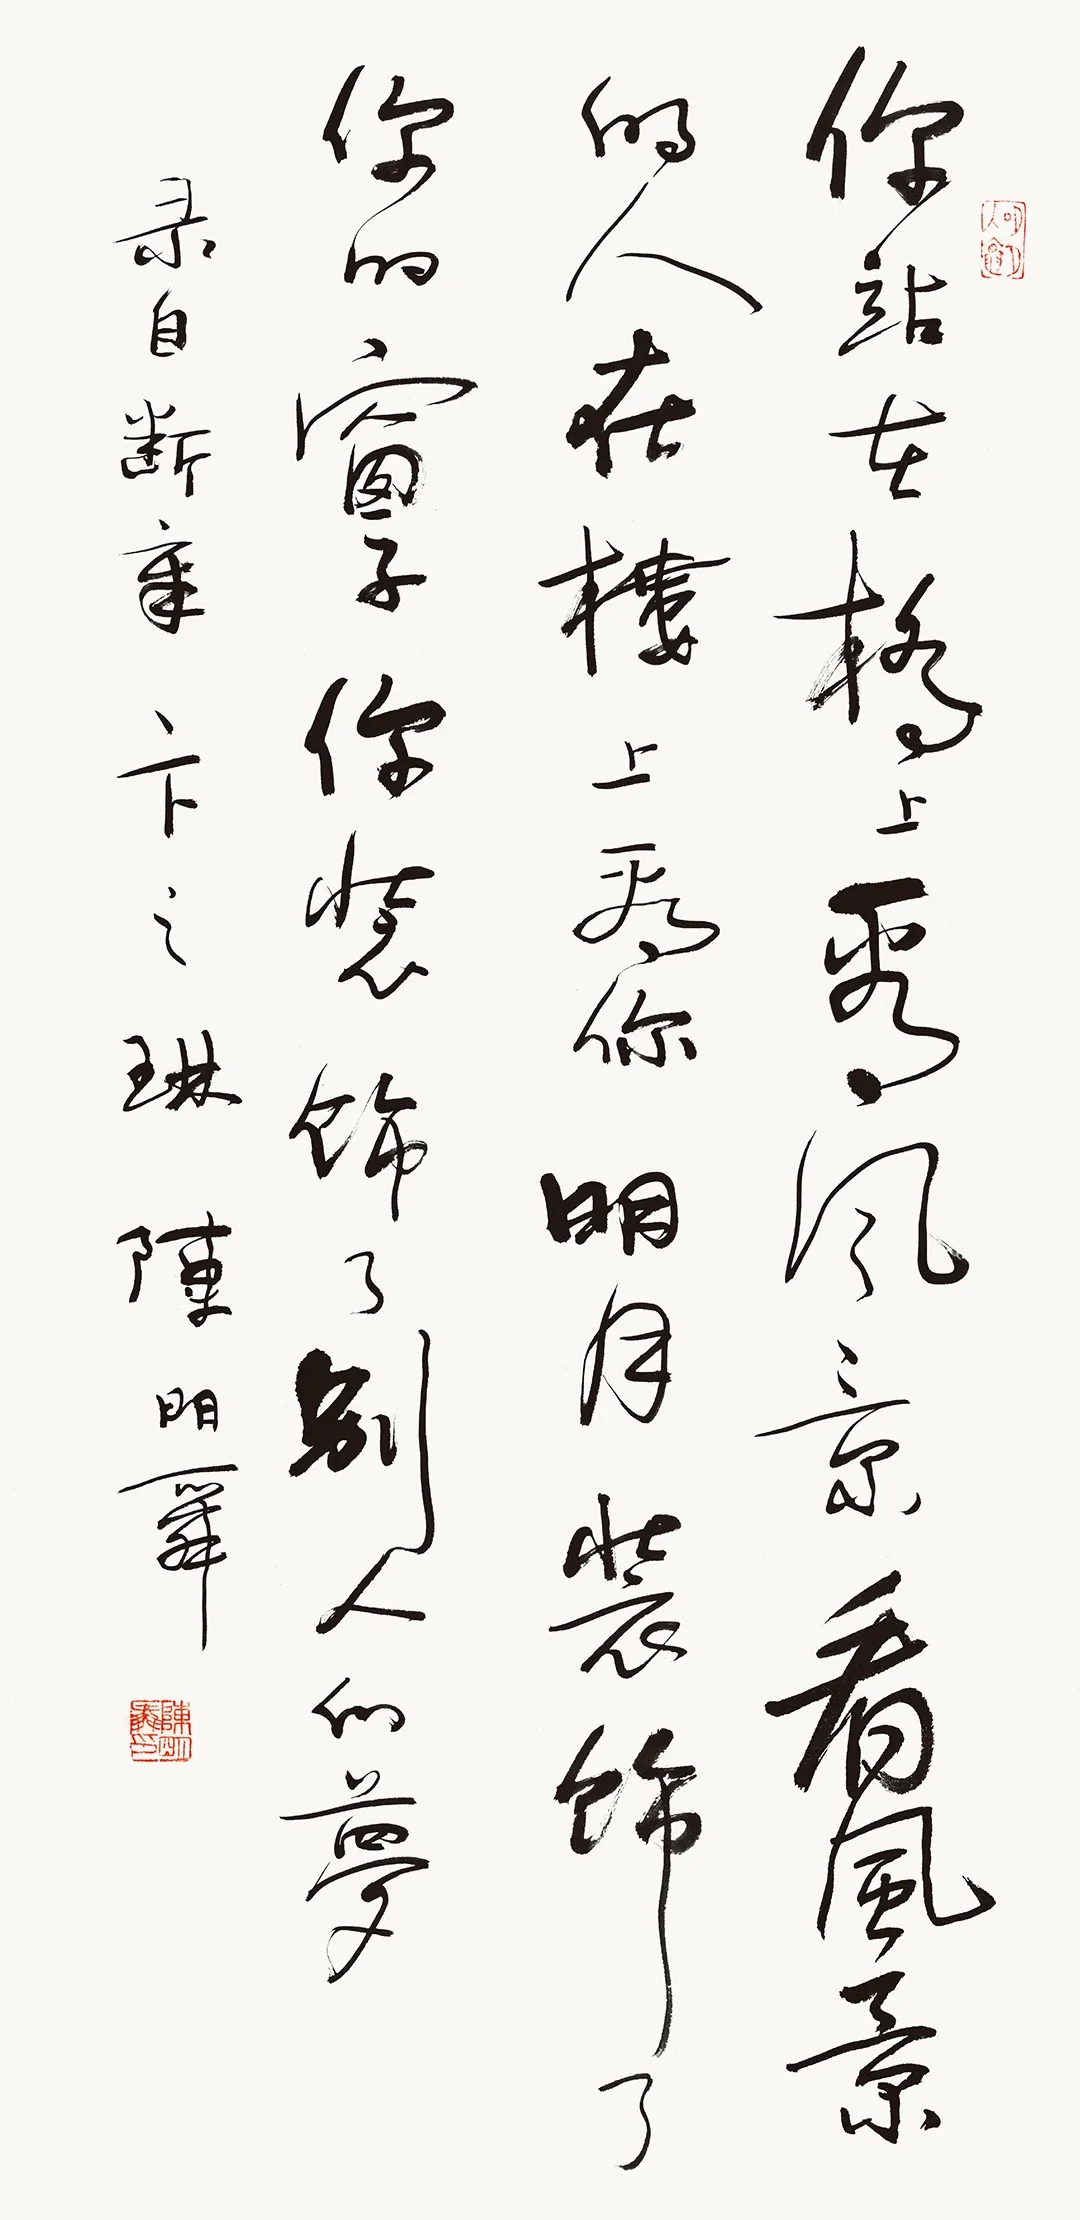 你站在橋上看风景看風景
的人在樓上看你明月裝飾了
你的窗子你裝飾了别人的夢
录自断章卞之琳陳明